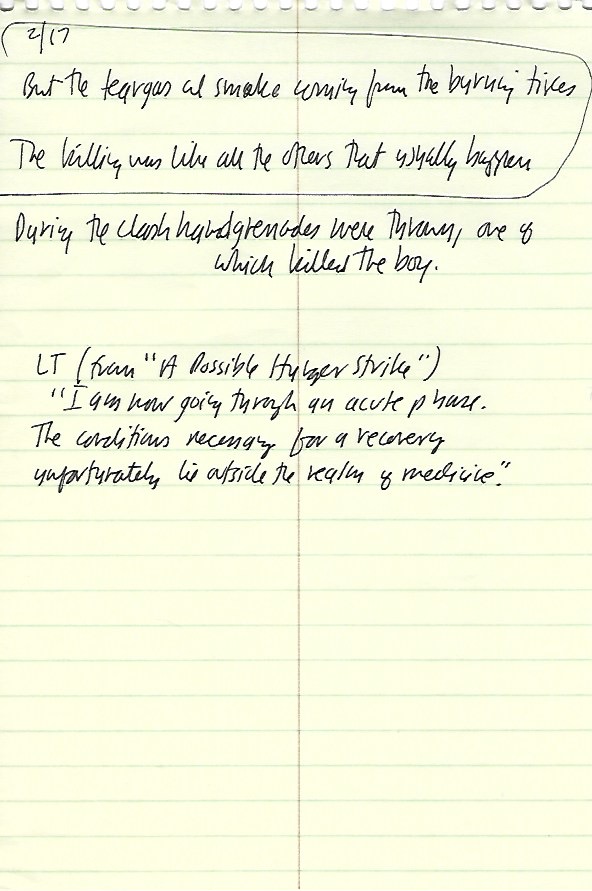 2/17
But the teargas and smoke coming from the burning tires
The killing was like all the others that usually happen
During the clash handgrenades were thrown, one of
which killed the boy.
LT (from "A Possible Hunger Strike")
"I am now going through an acute phase.
The conditions necessary for a recovery
unfortunately lie outside the realm of medicine."